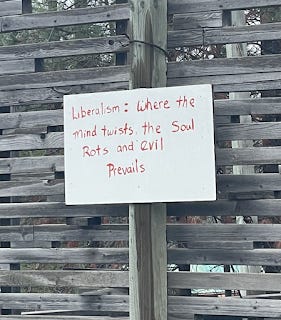 Liberalism: Where the
mind twists, the Soul
Rots and evil
Prevails